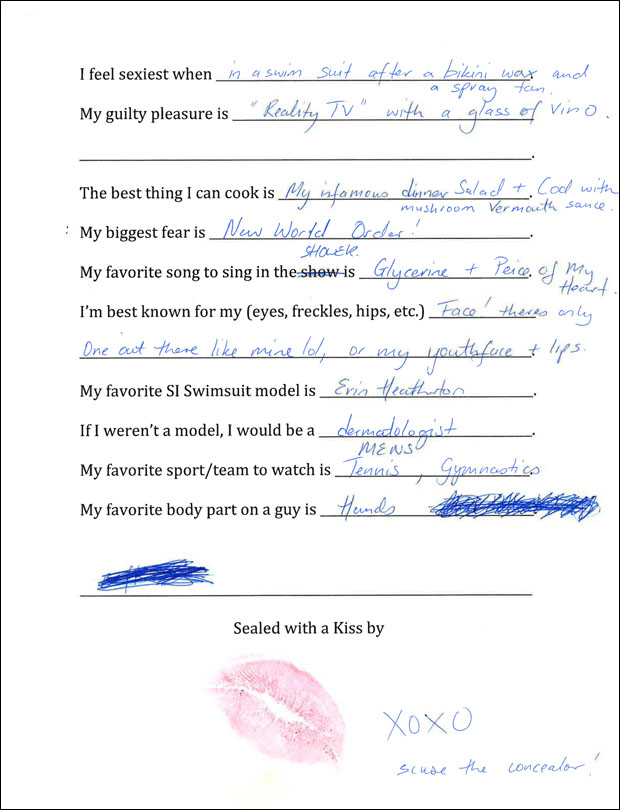 I feel sexiest when in a swim suit after a bikini wax and
a spray tan.
My guilty pleasure is "Reality TV" with a glass of Vino.
The best thing I can cook is My infamous dinner Salad + Cod with
mushroom Vermouth sauce.
My biggest fear is New World Order!
SHOWER.
My favorite song to sing in the show is Glycerine + Peice of My
Heart.
I'm best known for my (eyes, freckles, hips, etc.) Face! theres only
One out there like mine lol, or my youthface + lips.
My favorite SI Swimsuit model is Erin Heatherton.
If I weren't a model, I would be a dermatologist.
MENS
My favorite sport/team to watch is Tennis, Gymnastics
My favorite body part on a guy is Hands
Sealed with a Kiss by
XOXO
the concealor!